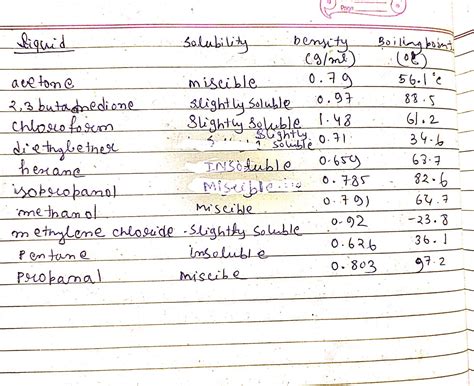 Page
Liquid solubility Density (g/ml) Boiling point (°C)
acetone miscible 0.79 56.1°c
2,3 butanedione slightly soluble 0.97 88.5
chloroform Slightly soluble 1.48 61.2
diethylether slightly soluble 0.71 34.6
hexane INSoluble 0.659 63.7
isopropanol Miscible 0.785 82.6
methanol Miscible 0.791 64.7
methylene chloride - slightly soluble 0.92 -23.8
Pentane insoluble 0.626 36.1
Propanal miscible 0.803 97.2